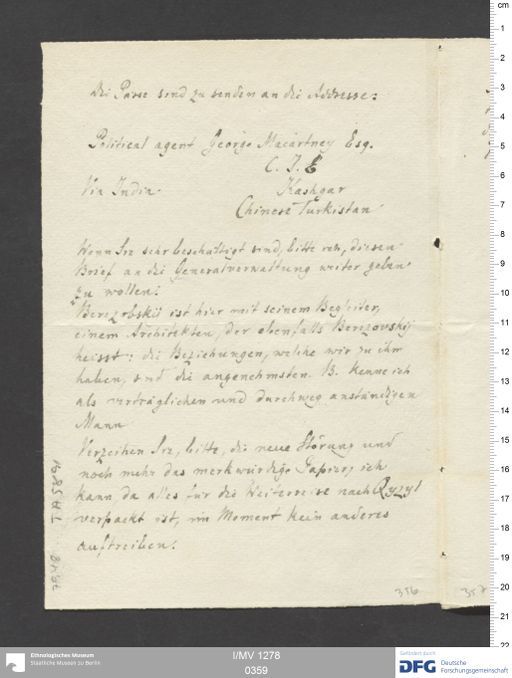 Die Pässe sind zu senden an die Addresse:
Political agent George Macartney Esq.
C. I. E
Via India. Kashgar
Chinese Turkistan
Wenn Sie sehr beschäftigt sind, bitte ich, diesen
Brief an die Generalverwaltung weiter geben
zu wollen.
Berezovskij ist hier mit seinem Begleiter,
einem Architekten, der ebenfalls Berezovskij
heisst: die Beziehungen, welche wir zu ihm
haben, sind die angenehmsten. B. kenne ich
als verträglichen und durchweg anständigen
Mann
Verzeihen Sie, bitte, die neue Störung und
noch mehr das merkwürdige Papier, ich
kann da alles für die Weiterreise nach Qyzyl
verpackt ist, im Moment kein anderes
auftreiben.
356
357
cm
0
1
2
3
4
5
6
7
8
9
10
11
12
13
14
15
16
17
18
19
20
21
22
Ethnologisches Museum
Staatliche Museen zu Berlin
I/MV 1278
0359
Gefördert durch
DFG Deutsche
Forschungsgemeinschaft